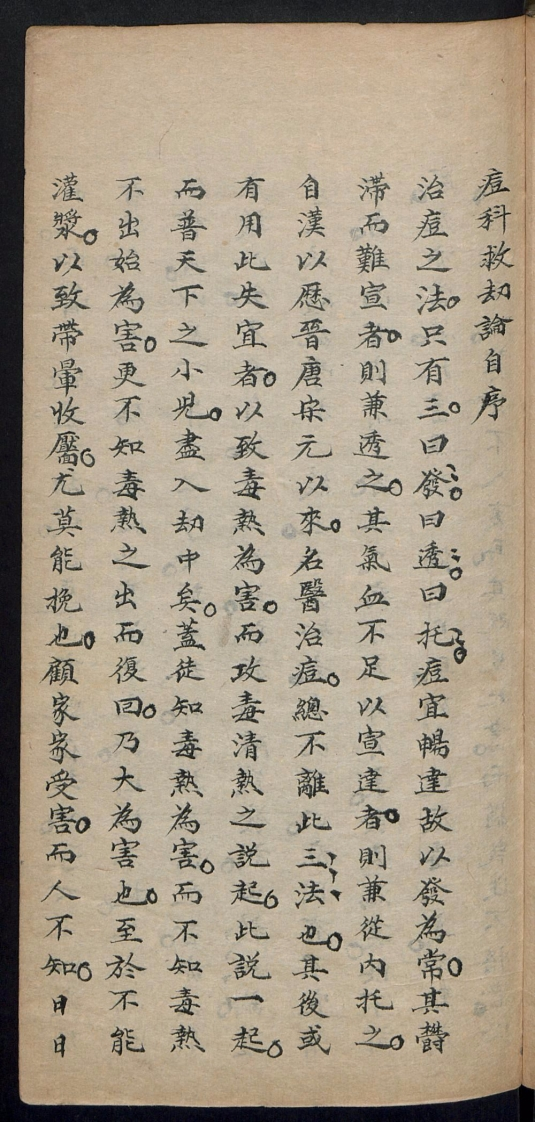 痘科救劫論自序
治痘之法。只有三。曰發。曰透。曰托。痘宜暢達故以發為常。其欝
滯而難宣者。則兼透之。其氣血不足以宣達者。則兼從內托之。
自漢以歷晉唐宋元以來。名醫治痘。總不離此三法也。其後或
有用此失宜者。以致毒熱為害。而攻毒清熱之說起。此說一起。
而普天下之小児。盡入劫中矣。蓋徒知毒熱為害。而不知毒熱
不出始為害。更不知毒熱之出而復回。乃大為害也。至於不能
灌漿。以致帶暈收靨。尤莫能挽也。顧家家受害。而人不知。日日